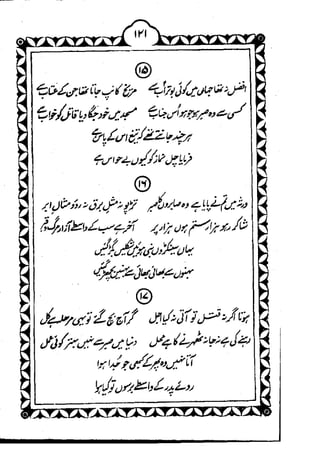 ۱۲۱
۱۵
افضل نہ تھا جہاں میں کوئی بوتراب سے
مریخ کانپ جاتا تھا جن کے عتاب سے
کس سے وہ صبر ہو جو ہوا اس جناب سے
مسجد میں خود جگا دیا قاتل کو خواب سے
ہر چند جانتے تھے کہ تیغ اس کے پاس ہے
فرمایا چل نماز کو کیوں بے حواس ہے
۱۶
ورنہ میں تم نے پایا ہے وہ صابروں کا گھر
تڑپو نہ مثل برق نہ رو مثال ابر
شاکر رہو ہزار ستم ہوں ہزار جبر
آخر ہے سب کے واسطے آرام گاہ قبر
یہاں سینکڑوں بنی ہوئی شکلیں بگڑ گئیں
بہنوں سے بھائی بھائی سے بہنیں بچھڑ گئیں
۱۷
ہوتا اگر نہ قتل تو آتی نہ کیا اجل
گر آج بچ گئے تو یہی مرحلہ ہے کل
رہنے کی ہے نہ جا نہ ٹھہرنے کا ہے محل
دنیا میں صبر سے نہیں بہتر کوئی عمل
آتا نہیں وہ پھر کے کبھی جو جدا ہوا
روئے پدر کے واسطے برسوں تو کیا ہوا